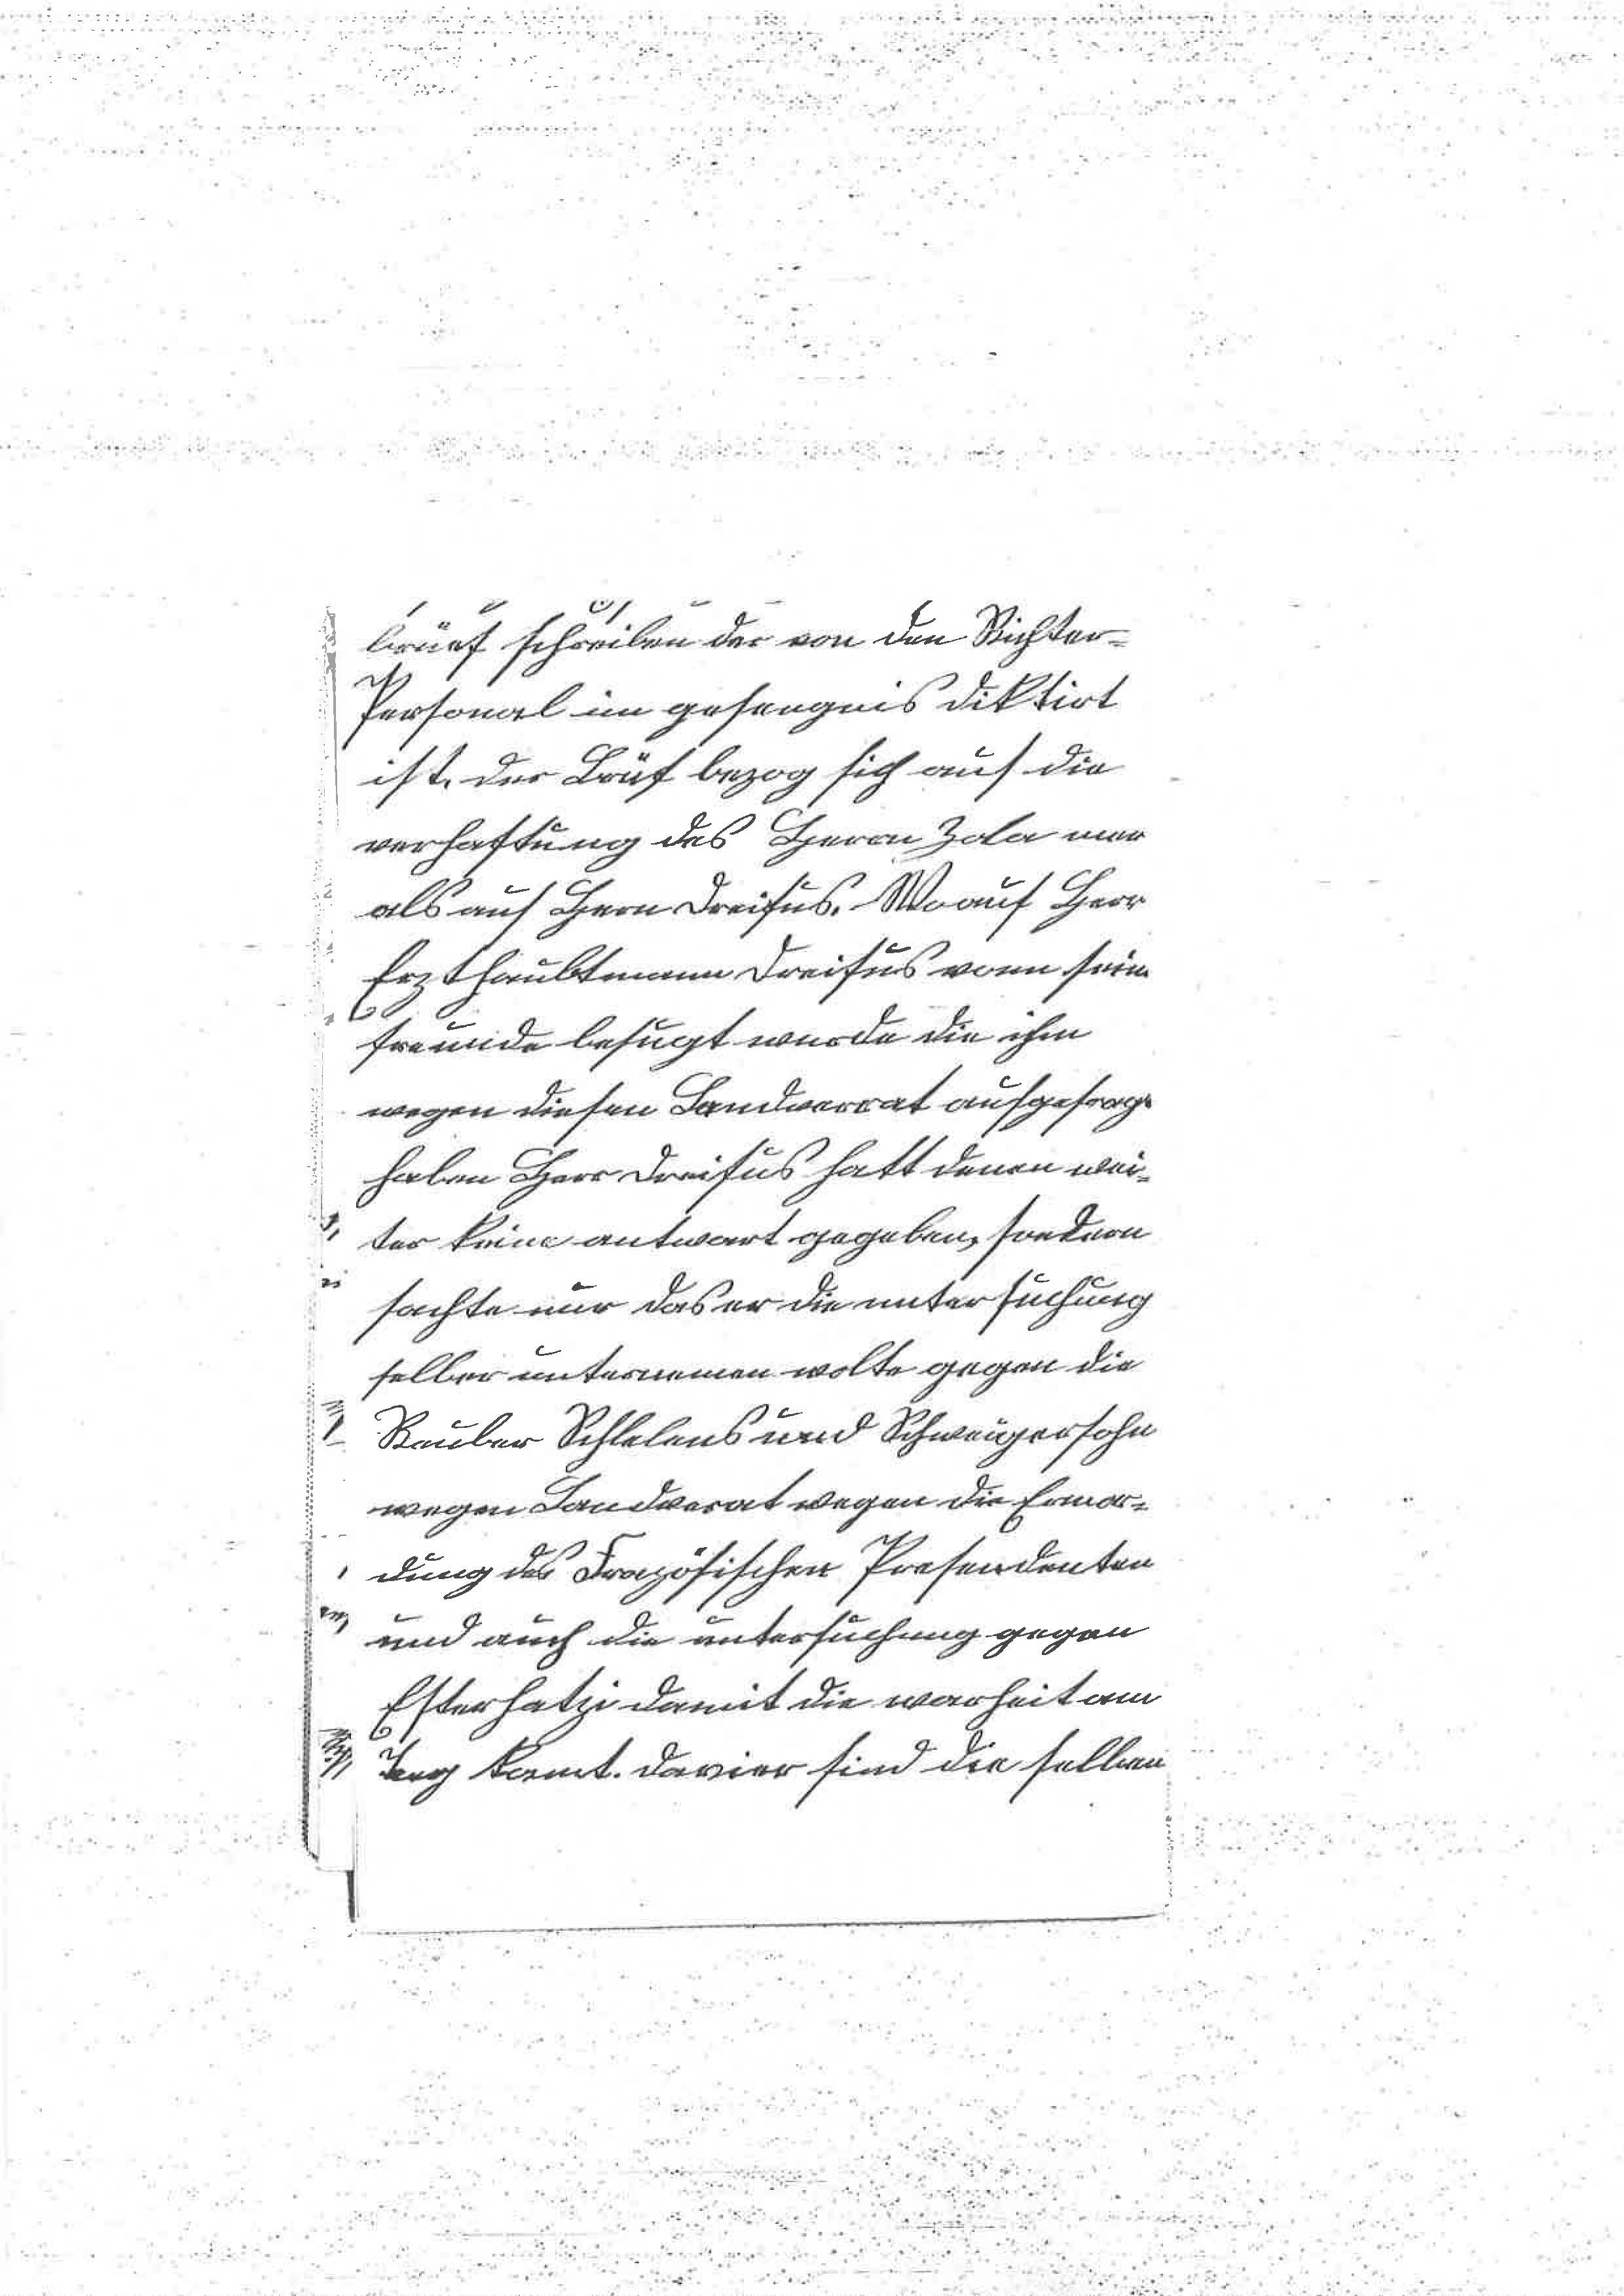 brüef schreiben der von den Richter-
Personal im gefengnis diktirt
ist. der Brüf bezog sich auf die
verhaftung des Herrn Zola mer
als auf Hern Dreifus. Woauf Herr
Erzthaubtmann Dreifus vonn sein
freunde besugt wurde die ihm
wegen diesen Landverrat ausgefragt
haben Herr Dreifus hatt denen wei-
ter keine antwart gegeben, sondern
sachte nur das er die untersuchung
selber unternemen wolte gegen die
Rauber Schlelens und Schweigersohn
wegen Landverat wegen die Ermor-
dung des Frazösischen Presendenten
und auch die untersuchung gegen
Esterhatzi damit die warheit am
Tag komt. davier sind die selben